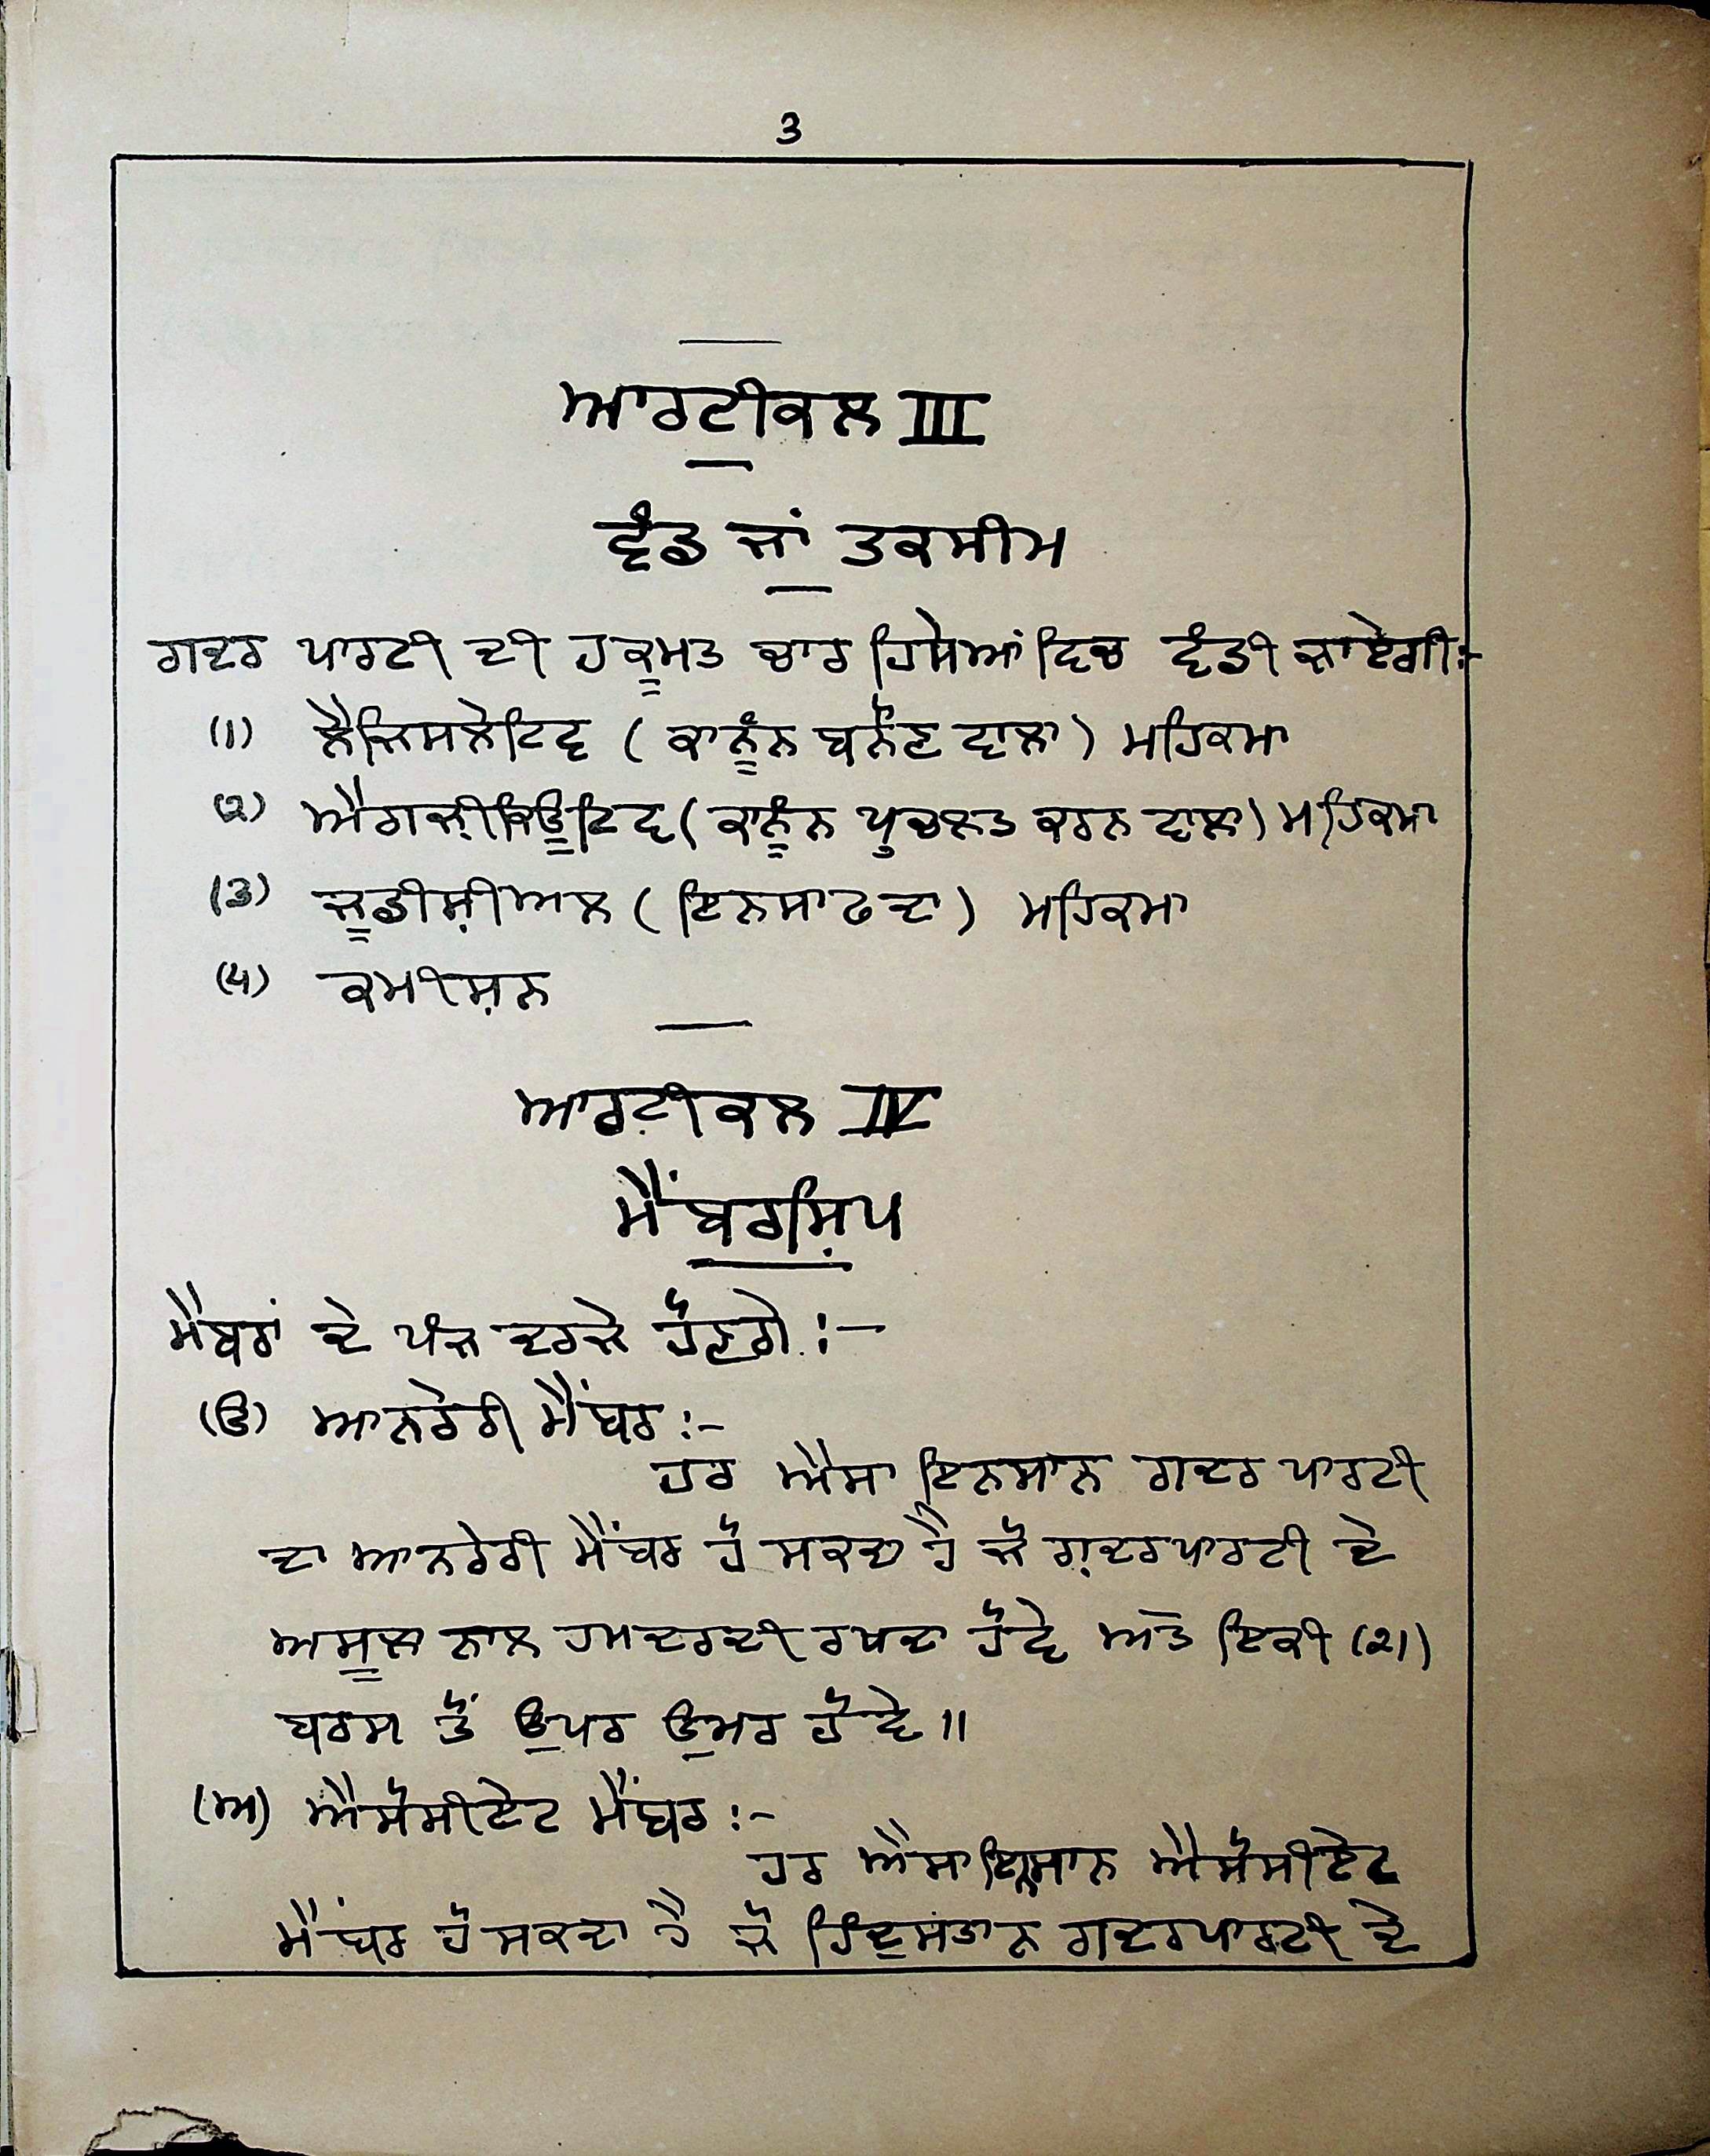 3
ਆਰਟੀਕਲ III
ਵੰਡ ਜਾਂ ਤਕਸੀਮ
ਗਦਰ ਪਾਰਟੀ ਦੀ ਹਕੂਮਤ ਚਾਰ ਹਿਸਿਆਂ ਵਿਚ ਵੰਡੀ ਜਾਏਗੀ:-
(1) ਲੈਜਿਸਲੇਟਿਵ (ਕਾਨੂੰਨ ਬਨੌਣ ਵਾਲਾ) ਮਹਿਕਮਾ
(2) ਐਗਜ਼ੀਕਿਊਟਿਵ (ਕਾਨੂੰਨ ਪ੍ਰਚਲਤ ਕਰਨ ਵਾਲਾ) ਮਹਿਕਮਾ
(3) ਜੂਡੀਸ਼ੀਅਲ (ਇਨਸਾਫ ਦਾ) ਮਹਿਕਮਾ
(4) ਕਮੀਸ਼ਨ
ਆਰਟੀਕਲ IV
ਮੈਂਬਰਸ਼ਿਪ
ਮੈਂਬਰਾਂ ਦੇ ਪੰਜ ਦਰਜੇ ਹੋਣਗੇ :-
(ੳ) ਆਨਰੇਰੀ ਮੈਂਬਰ :-
ਹਰ ਐਸਾ ਇਨਸਾਨ ਗਦਰ ਪਾਰਟੀ
ਦਾ ਆਨਰੇਰੀ ਮੈਂਬਰ ਹੋ ਸਕਦਾ ਹੈ ਜੋ ਗ਼ਦਰ ਪਾਰਟੀ ਦੇ
ਅਸੂਲ ਨਾਲ ਹਮਦਰਦੀ ਰਖਦਾ ਹੋਵੇ ਅਤੇ ਇਕੀ (21)
ਬਰਸ ਤੋਂ ਉਪਰ ਉਮਰ ਹੋਵੇ॥
(ਅ) ਐਸੋਸੀਏਟ ਮੈਂਬਰ :-
ਹਰ ਐਸਾ ਇਨਸਾਨ ਐਸੋਸੀਏਟ
ਮੈਂਬਰ ਹੋ ਸਕਦਾ ਹੈ ਜੋ ਹਿੰਦੁਸਤਾਨ ਗਦਰ ਪਾਰਟੀ ਦੇ